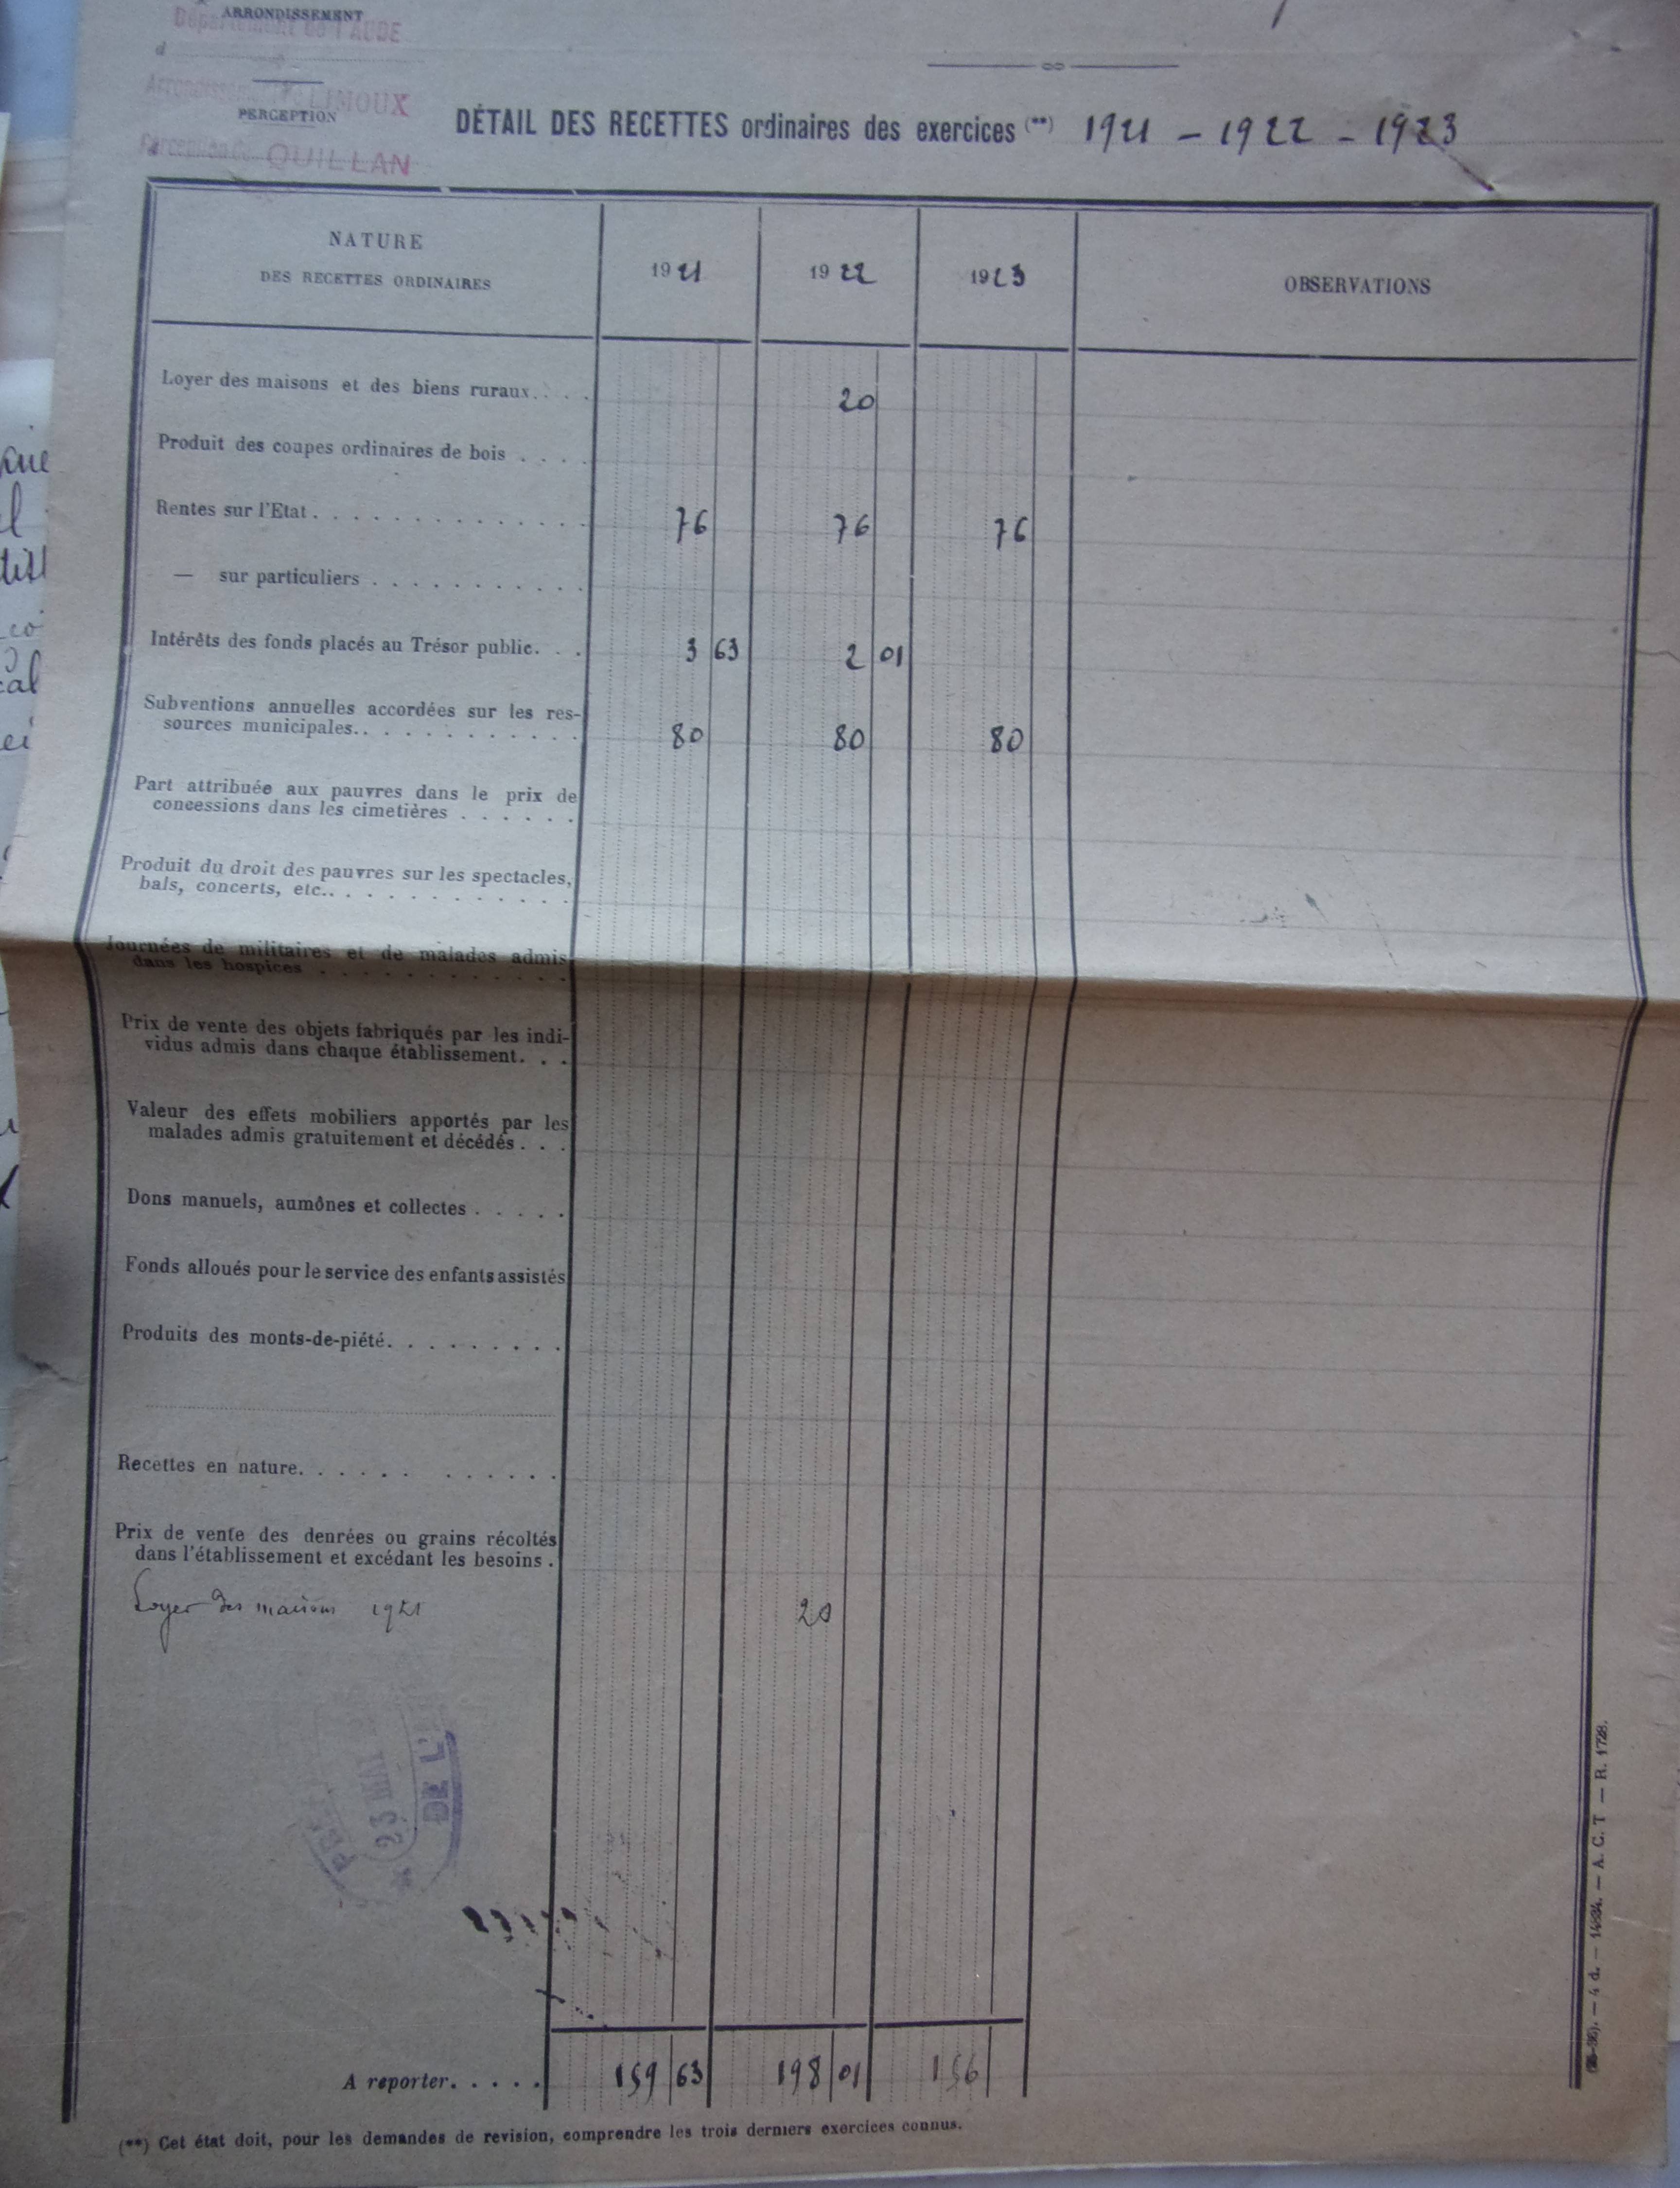 ARRONDISSEMENT
Département de l'AUDE
d
Arrondissement de LIMOUX
PERCEPTION
Perception de QUILLAN
DÉTAIL DES RECETTES ordinaires des exercices (**) 1921 - 1922 - 1923
NATURE
DES RECETTES ORDINAIRES
1921
1922
1923
OBSERVATIONS
Loyer des maisons et des biens ruraux. . . .
20
Produit des coupes ordinaires de bois . . . .
Rentes sur l'Etat . . . . . . . . . . . . . .
76 76 76
— sur particuliers . . . . . . . . . . .
Intérêts des fonds placés au Trésor public. . .
3 63 2 01
Subventions annuelles accordées sur les res-
sources municipales. . . . . . . . . . . .
80 80 80
Part attribuée aux pauvres dans le prix de
concessions dans les cimetières . . . . . .
Produit du droit des pauvres sur les spectacles,
bals, concerts, etc. . . . . . . . . . . . .
Journées de militaires et de malades admis
dans les hospices . . . . . . . . . . . .
Prix de vente des objets fabriqués par les indi-
vidus admis dans chaque établissement. . .
Valeur des effets mobiliers apportés par les
malades admis gratuitement et décédés . . .
Dons manuels, aumônes et collectes . . . . .
Fonds alloués pour le service des enfants assistés
Produits des monts-de-piété. . . . . . . . .
Recettes en nature. . . . . . . . . . . .
Prix de vente des denrées ou grains récoltés
dans l'établissement et excédant les besoins .
Loyer des maisons 1921 20
DE L'
23
A reporter. . . . . 159 63 198 01 156
(**) Cet état doit, pour les demandes de revision, comprendre les trois derniers exercices connus.
— 4 d. — 14934. — A. C. T — R. 1728.